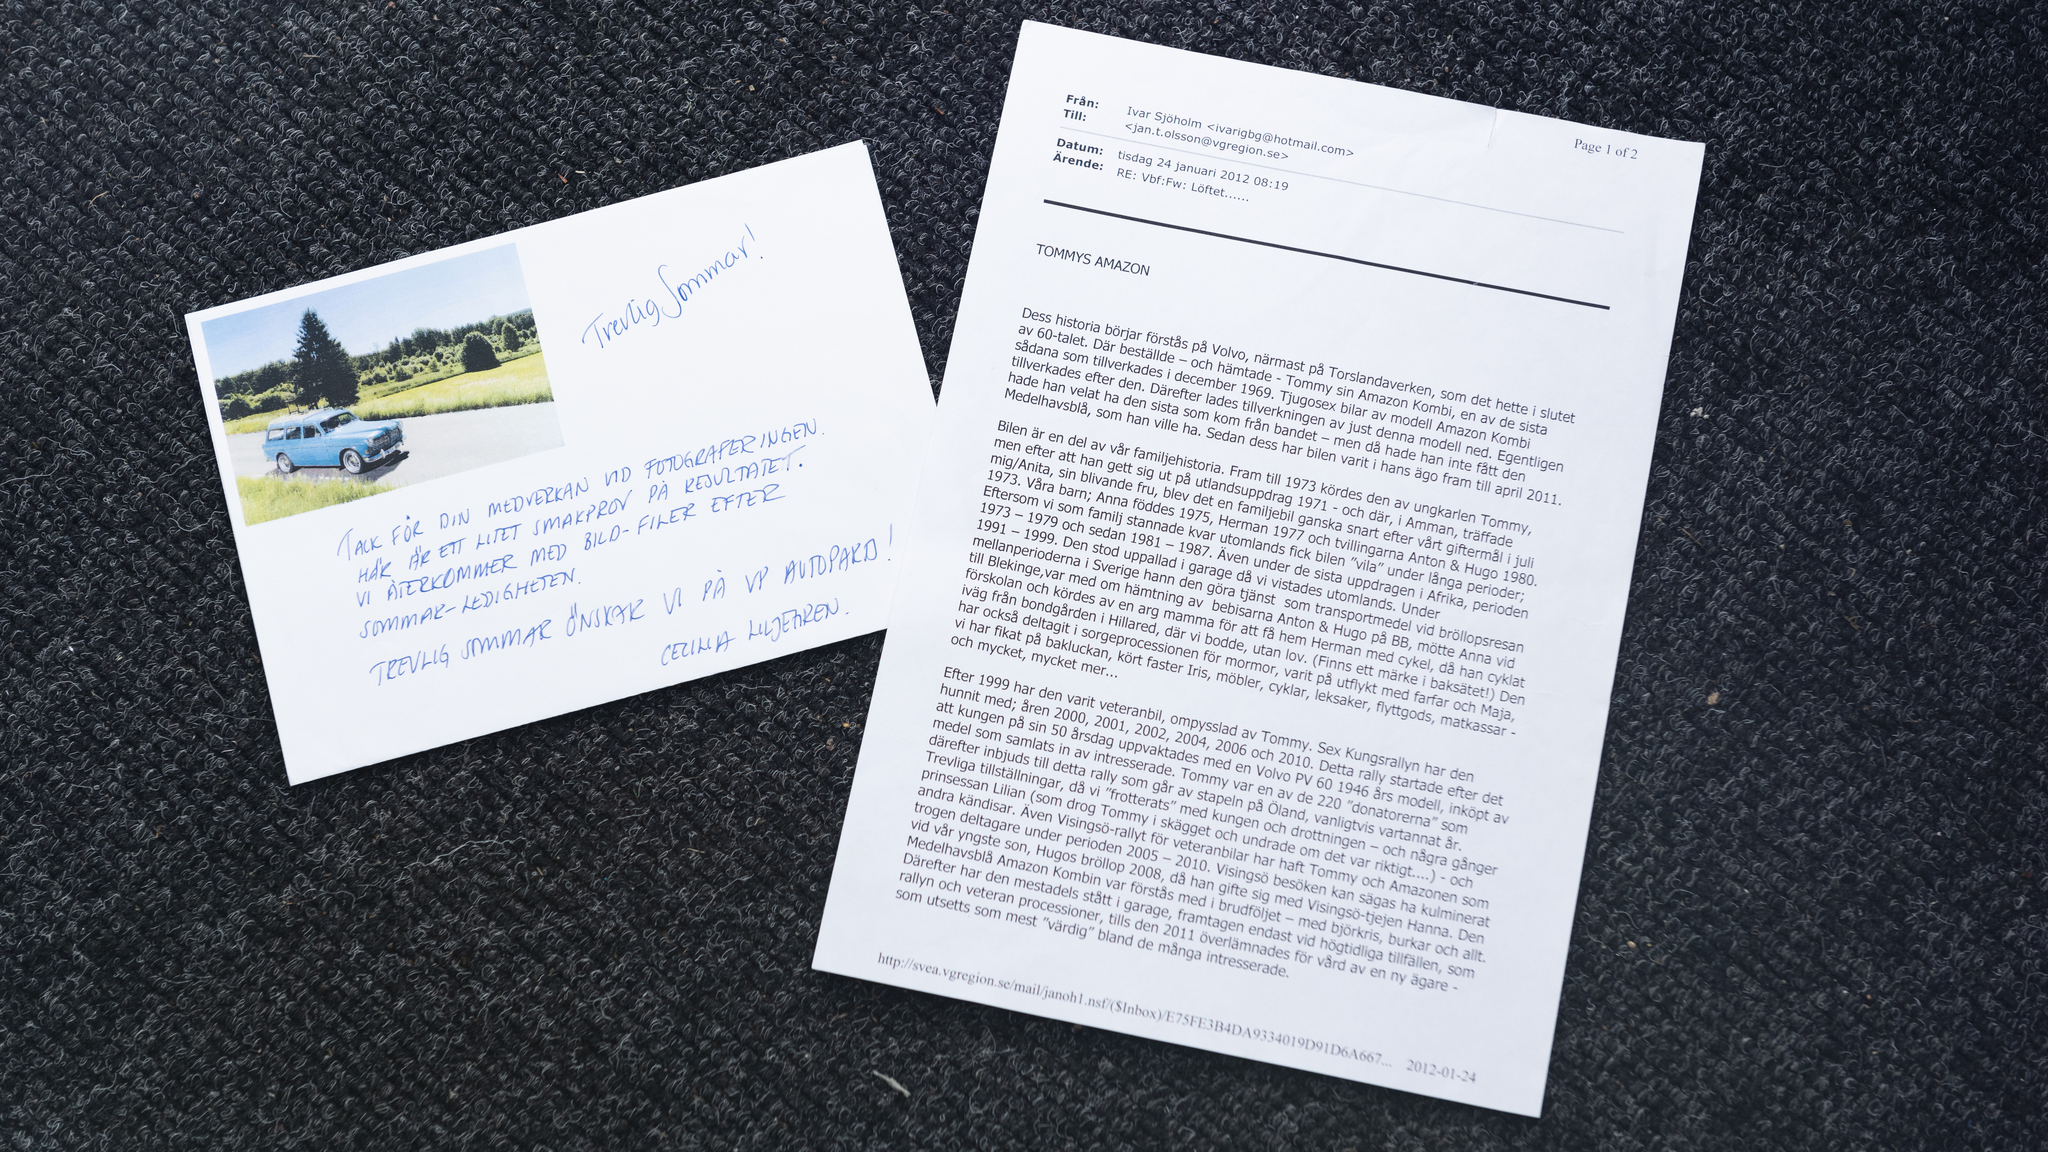 Trevlig Sommar!
TACK FÖR DIN MEDVERKAN VID FOTOGRAFERINGEN.
HÄR ÄR ETT LITET SMAKPROV PÅ RESULTATET.
VI ÅTERKOMMER MED BILD-FILER EFTER
SOMMAR-LEDIGHETEN.
TREVLIG SOMMAR ÖNSKAR VI PÅ VP AUTOPARD!
CECILIA LILJEGREN.
Page 1 of 2
Från: Ivar Sjöholm <ivarigbg@hotmail.com>
Till: <jan.t.olsson@vgregion.se>
Datum: tisdag 24 januari 2012 08:19
Ärende: RE: Vbf:Fw: Löftet......
TOMMYS AMAZON
Dess historia börjar förstås på Volvo, närmast på Torslandaverken, som det hette i slutet
av 60-talet. Där beställde – och hämtade - Tommy sin Amazon Kombi, en av de sista
sådana som tillverkades i december 1969. Tjugosex bilar av modell Amazon Kombi
tillverkades efter den. Därefter lades tillverkningen av just denna modell ned. Egentligen
hade han velat ha den sista som kom från bandet – men då hade han inte fått den
Medelhavsblå, som han ville ha. Sedan dess har bilen varit i hans ägo fram till april 2011.
Bilen är en del av vår familjehistoria. Fram till 1973 kördes den av ungkarlen Tommy,
men efter att han gett sig ut på utlandsuppdrag 1971 - och där, i Amman, träffade
mig/Anita, sin blivande fru, blev det en familjebil ganska snart efter vårt giftermål i juli
1973. Våra barn; Anna föddes 1975, Herman 1977 och tvillingarna Anton & Hugo 1980.
Eftersom vi som familj stannade kvar utomlands fick bilen ”vila” under långa perioder;
1973 – 1979 och sedan 1981 – 1987. Även under de sista uppdragen i Afrika, perioden
1991 – 1999. Den stod uppallad i garage då vi vistades utomlands. Under
mellanperioderna i Sverige hann den göra tjänst som transportmedel vid bröllopsresan
till Blekinge,var med om hämtning av bebisarna Anton & Hugo på BB, mötte Anna vid
förskolan och kördes av en arg mamma för att få hem Herman med cykel, då han cyklat
iväg från bondgården i Hillared, där vi bodde, utan lov. (Finns ett märke i baksätet!) Den
har också deltagit i sorgeprocessionen för mormor, varit på utflykt med farfar och Maja,
vi har fikat på bakluckan, kört faster Iris, möbler, cyklar, leksaker, flyttgods, matkassar -
och mycket, mycket mer...
Efter 1999 har den varit veteranbil, ompysslad av Tommy. Sex Kungsrallyn har den
hunnit med; åren 2000, 2001, 2002, 2004, 2006 och 2010. Detta rally startade efter det
att kungen på sin 50 årsdag uppvaktades med en Volvo PV 60 1946 års modell, inköpt av
medel som samlats in av intresserade. Tommy var en av de 220 ”donatorerna” som
därefter inbjuds till detta rally som går av stapeln på Öland, vanligtvis vartannat år.
Trevliga tillställningar, då vi ”frotterats” med kungen och drottningen – och några gånger
prinsessan Lilian (som drog Tommy i skägget och undrade om det var riktigt....) - och
andra kändisar. Även Visingsö-rallyt för veteranbilar har haft Tommy och Amazonen som
trogen deltagare under perioden 2005 – 2010. Visingsö besöken kan sägas ha kulminerat
vid vår yngste son, Hugos bröllop 2008, då han gifte sig med Visingsö-tjejen Hanna. Den
Medelhavsblå Amazon Kombin var förstås med i brudföljet – med björkris, burkar och allt.
Därefter har den mestadels stått i garage, framtagen endast vid högtidliga tillfällen, som
rallyn och veteran processioner, tills den 2011 överlämnades för vård av en ny ägare -
som utsetts som mest ”värdig” bland de många intresserade.
http://svea.vgregion.se/mail/janoh1.nsf/($Inbox)/E75FE3B4DA9334019D91D6A667... 2012-01-24